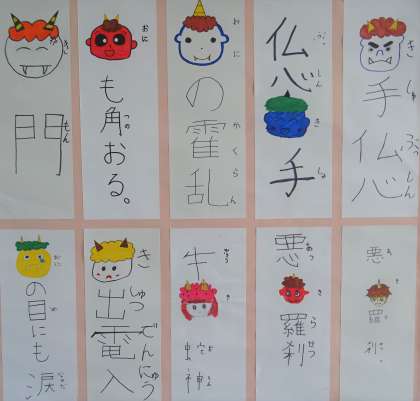 手仏心
き しゅ ぶっ しん
仏心手
ぶっ しん き しゅ
の霍乱
おに かくらん
も角おる。
おに
門
き もん
悪羅
悪羅刹
あっ き ら せつ
牛蛇神
出電入
き しゅつ でん にゅう
の目にも涙
おに め なみだ